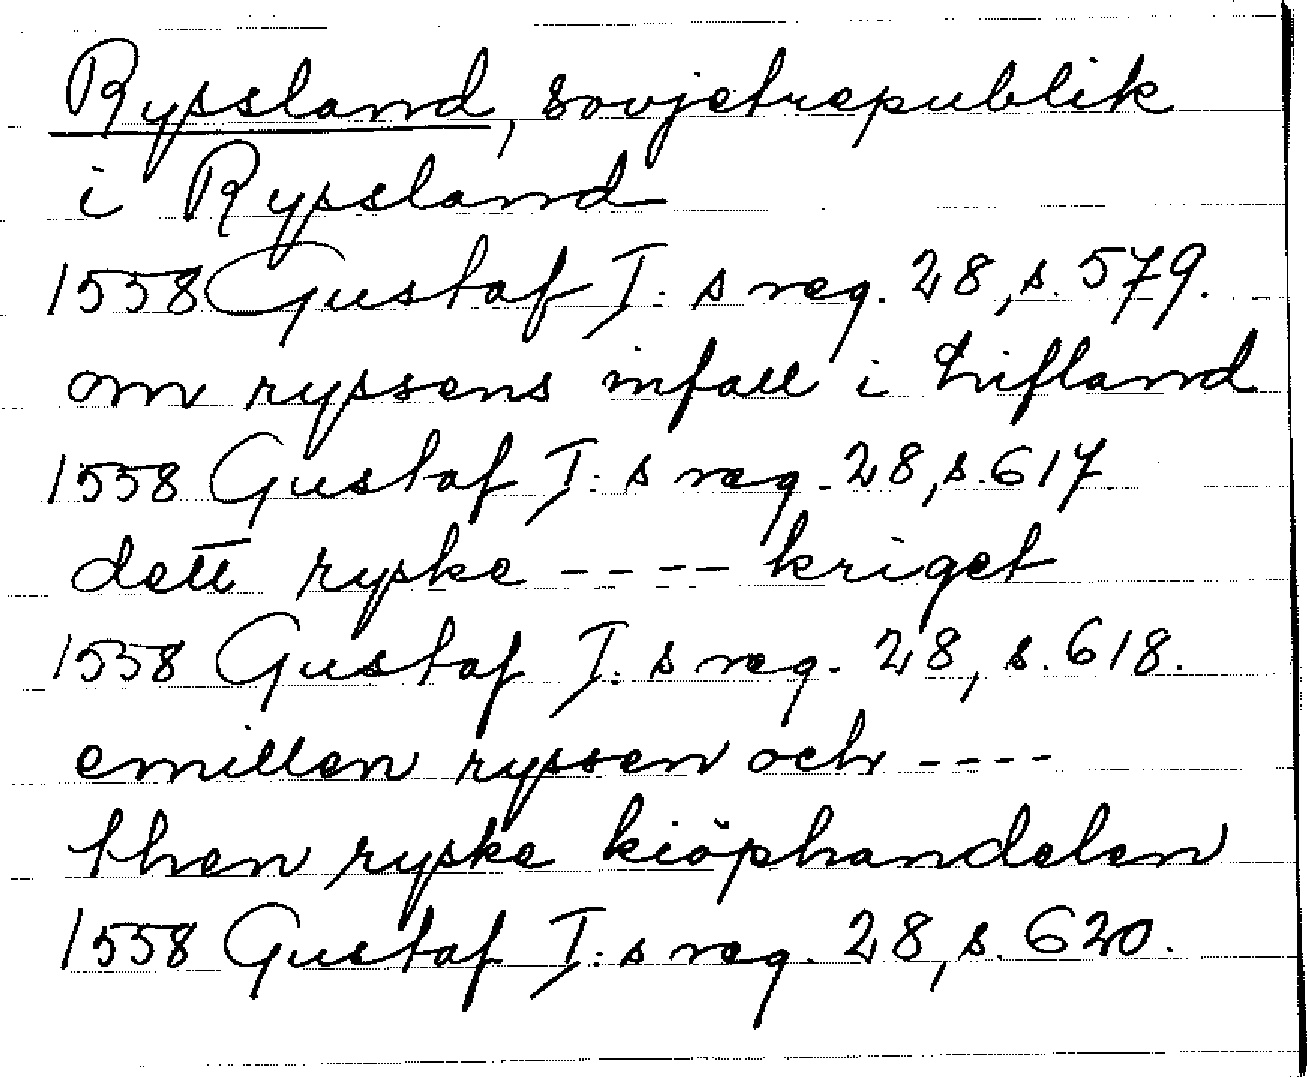 Ryssland, sovjetrepublik
i Ryssland
1558 Gustaf I:s reg. 28, s. 579.
om ryssens infall i Lifland
1558 Gustaf I:s reg. 28, s. 617
dett ryske ---- kriget
1558 Gustaf I:s reg. 28, s. 618.
emillen ryssen och ----
then ryske kiöphandelen
1558 Gustaf I:s reg. 28, s. 620.